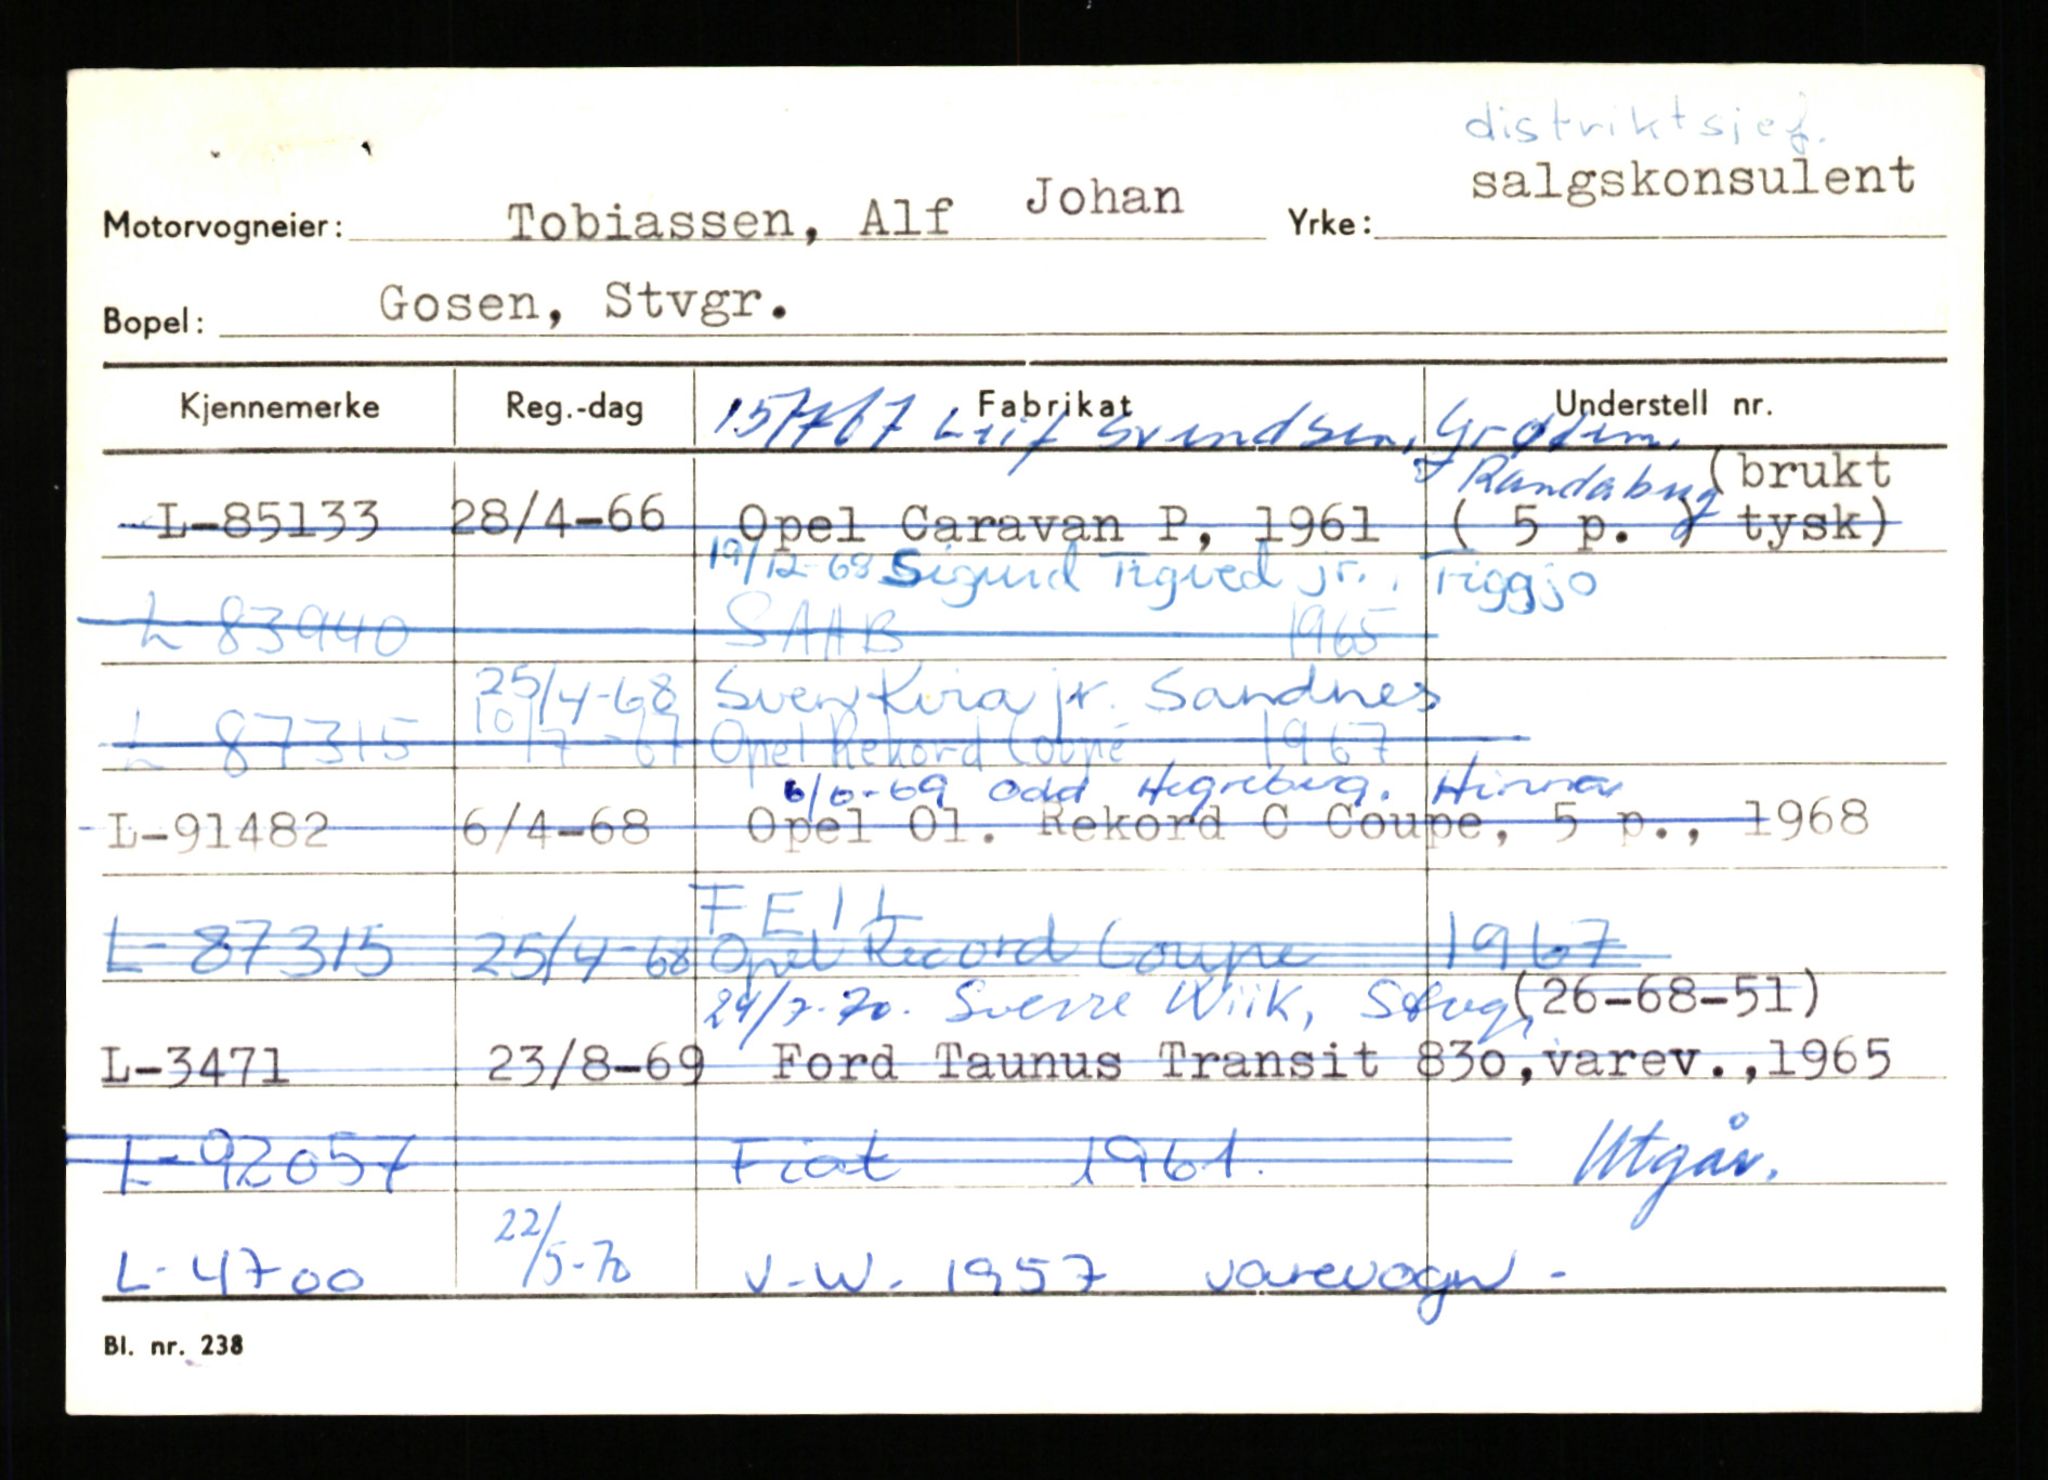 distriktsjef.
Motorvogneier: Tobiassen, Alf Johan Yrke: salgskonsulent
Bopel: Gosen, Stvgr.
Kjennemerke Reg.-dag Fabrikat Understell nr.
15/7-67 Leif Svendsen, Grødem,
Randaberg (brukt
L-85133 28/4-66 Opel Caravan P, 1961 ( 5 p. ) tysk)
19/12-68 Sigurd jr.,
L 83940 SAAB 1965
25/4-68 Sven Kvia jr. Sandnes
L 87315 10/7-67 Opel Rekord Coupé 1967
6/6-69 Odd Hegreberg. Hinna
L-91482 6/4-68 Opel Ol. Rekord C Coupe, 5 p., 1968
FEIL
L-87315 25/4-68 Opel Record Coupe 1967
24/7-70. Sverre Wiik, Stvgr, (26-68-51)
L-3471 23/8-69 Ford Taunus Transit 830,varev.,1965
L-92057 Fiat 1961. Utgår.
L-4700 22/5-70 V-W. 1957 varevogn -
Bl. nr. 238